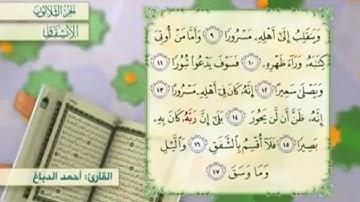 الجزء الثلاثون
الانشقاق
وَيَنقَلِبُ إِلَىٰ أَهْلِهِۦ مَسْرُورًا ٩ وَأَمَّا مَنْ أُوتِىَ
كِتَٰبَهُۥ وَرَآءَ ظَهْرِهِۦ ١٠ فَسَوْفَ يَدْعُوا۟ ثُبُورًا ١١
وَيَصْلَىٰ سَعِيرًا ١٢ إِنَّهُۥ كَانَ فِىٓ أَهْلِهِۦ مَسْرُورًا ١٣
إِنَّهُۥ ظَنَّ أَن لَّن يَحُورَ ١٤ بَلَىٰٓ إِنَّ رَبَّهُۥ كَانَ بِهِۦ
بَصِيرًا ١٥ فَلَآ أُقْسِمُ بِٱلشَّفَقِ ١٦ وَٱلَّيْلِ
وَمَا وَسَقَ ١٧
القارئ: أحمد الدباغ